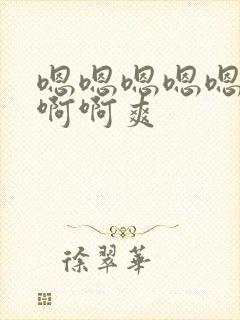 嗯嗯嗯嗯嗯
啊啊爽
徐翠华